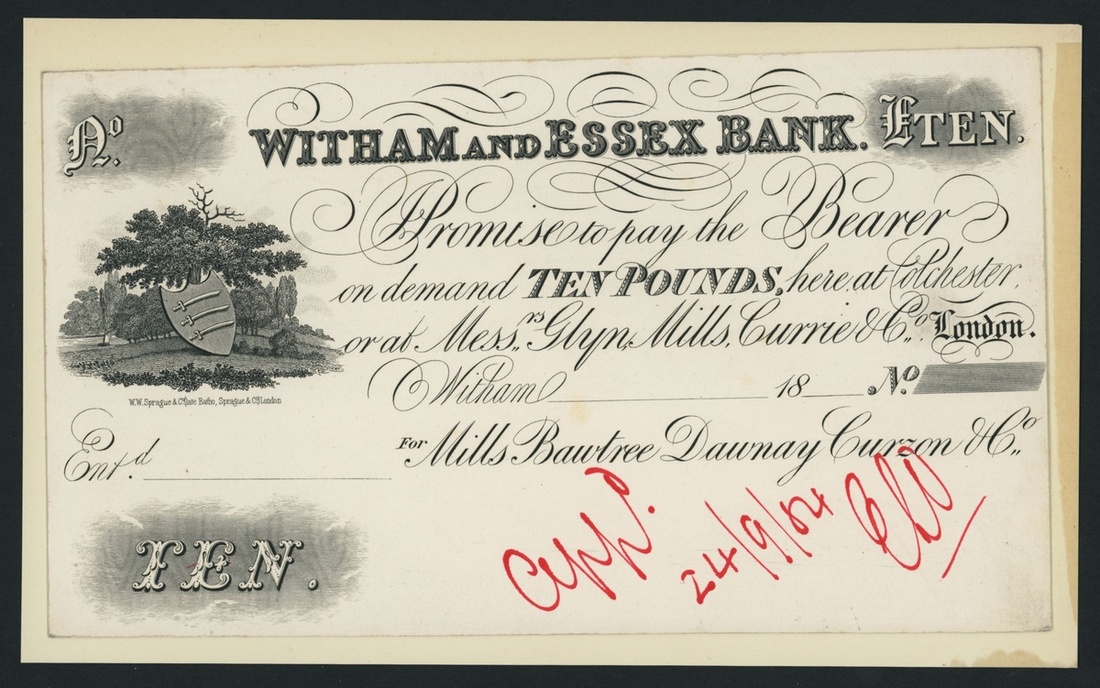 No.
WITHAM AND ESSEX BANK.
£TEN.
Promise to pay the Bearer
on demand TEN POUNDS, here at Colchester,
or at Messrs. Glyn, Mills, Currie & Co. London.
Witham 18 No.
W.W. Sprague & Co. late Batho, Sprague & Co. London
Entd.
For Mills Bawtree Dawnay Curzon & Co.
TEN.
appd.
24/9/84